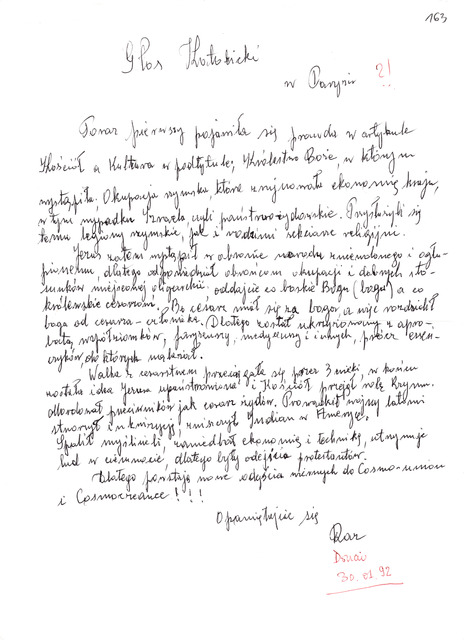 163
Głos Katolicki
w Paryżu 2!
Poraz pierwszy pojawiła się prawda w artykule
Kościół a Kultura w podtytule; Królestwo Boże, w którym
wystąpiła, Okupacja rzymska, która zrujnowała ekonomię kraju,
w tym wypadku Izraela, czyli państwo żydowskie. Przysłużyli się
temu legiony rzymskie, jak i rodzimi sekciarze religijni.
Jezus zatem wystąpił w obronie narodu zniewolonego i
, dlatego odpowiedział obrońcom okupacji i dobrych sto-
sunków miejscowej oligarchii: oddajcie co boskie Bogu (bogu) a co
królewskie cesarzowi. Bo cesarz miał się za boga, a więc rozdzielił
boga od cesarza-człowieka. Dlatego został ukrzyżowany z apro-
batą współziomków, faryzeuszy, i innych, prócz eseń-
czyków, do których należał.
Walka z cesarstwem przeciągała się przez 3 wieki, w końcu
została idea Jezusa upaństwowiona i Kościół przejął rolę Rzymu.
przeciwników jak cesarz żydów. Prowadził wojny latami
stworzył inkwizycję, zniszczył Indian w Ameryce,
Spalił myślicieli, zaniedbał ekonomię i technikę, utrzymuje
lud w ciemnocie, dlatego były odejścia protestantów.
Dlatego powstają nowe odejścia wiernych do Cosmo-unionu
i Cosmocreance!!!
Opamiętajcie się
Kar
30.01.92